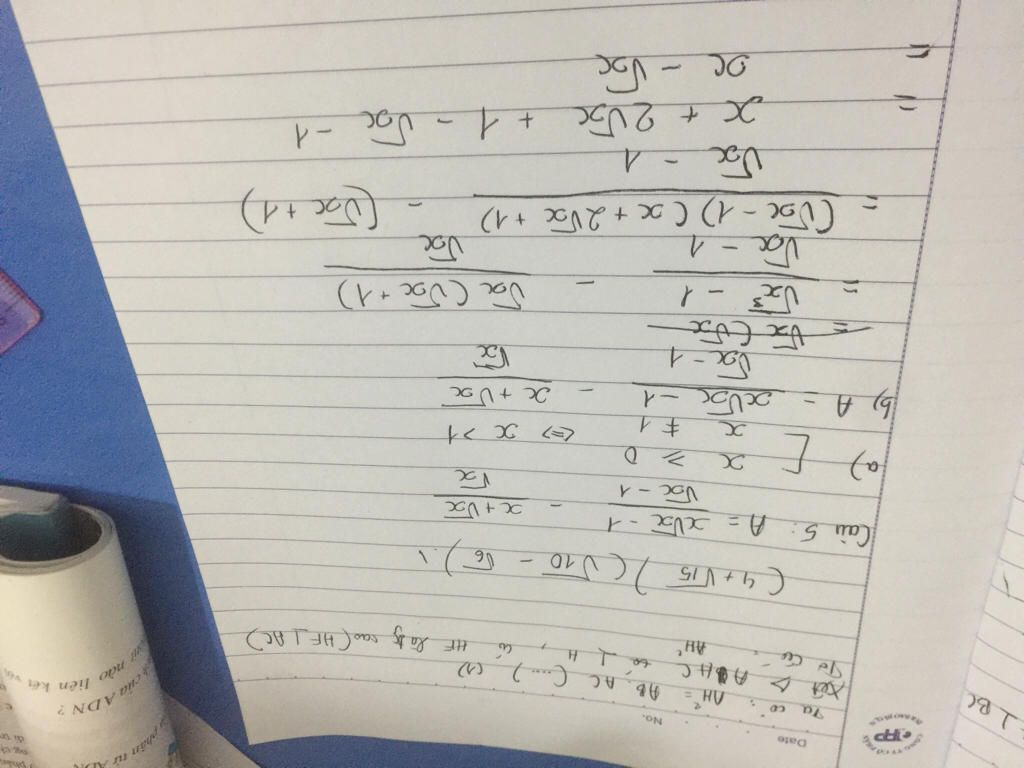 Date
No.
Ta có: AH² = AB. AC (....) (1)
Xét Δ AHC có ⊥ H, có HF là đg cao (HF ⊥ AC)
Ta có: AH²
(4 + √15)(√10 - √6).
Câu 5: A = (x√x - 1)/(√x - 1) - (x + √x)/√x
a) [ x ≥ 0
x ≠ 1 <=> x > 1
b) A = (x√x - 1)/(√x - 1) - (x + √x)/√x
= √x (√x
= (√x³ - 1)/(√x - 1) - √x (√x + 1)/√x
= (√x - 1)(x + 2√x + 1)/(√x - 1) - (√x + 1)
= x + 2√x + 1 - √x - 1
= x - √x
⊥ BC
phân tử ADN
của ADN ?
nào liên kết với